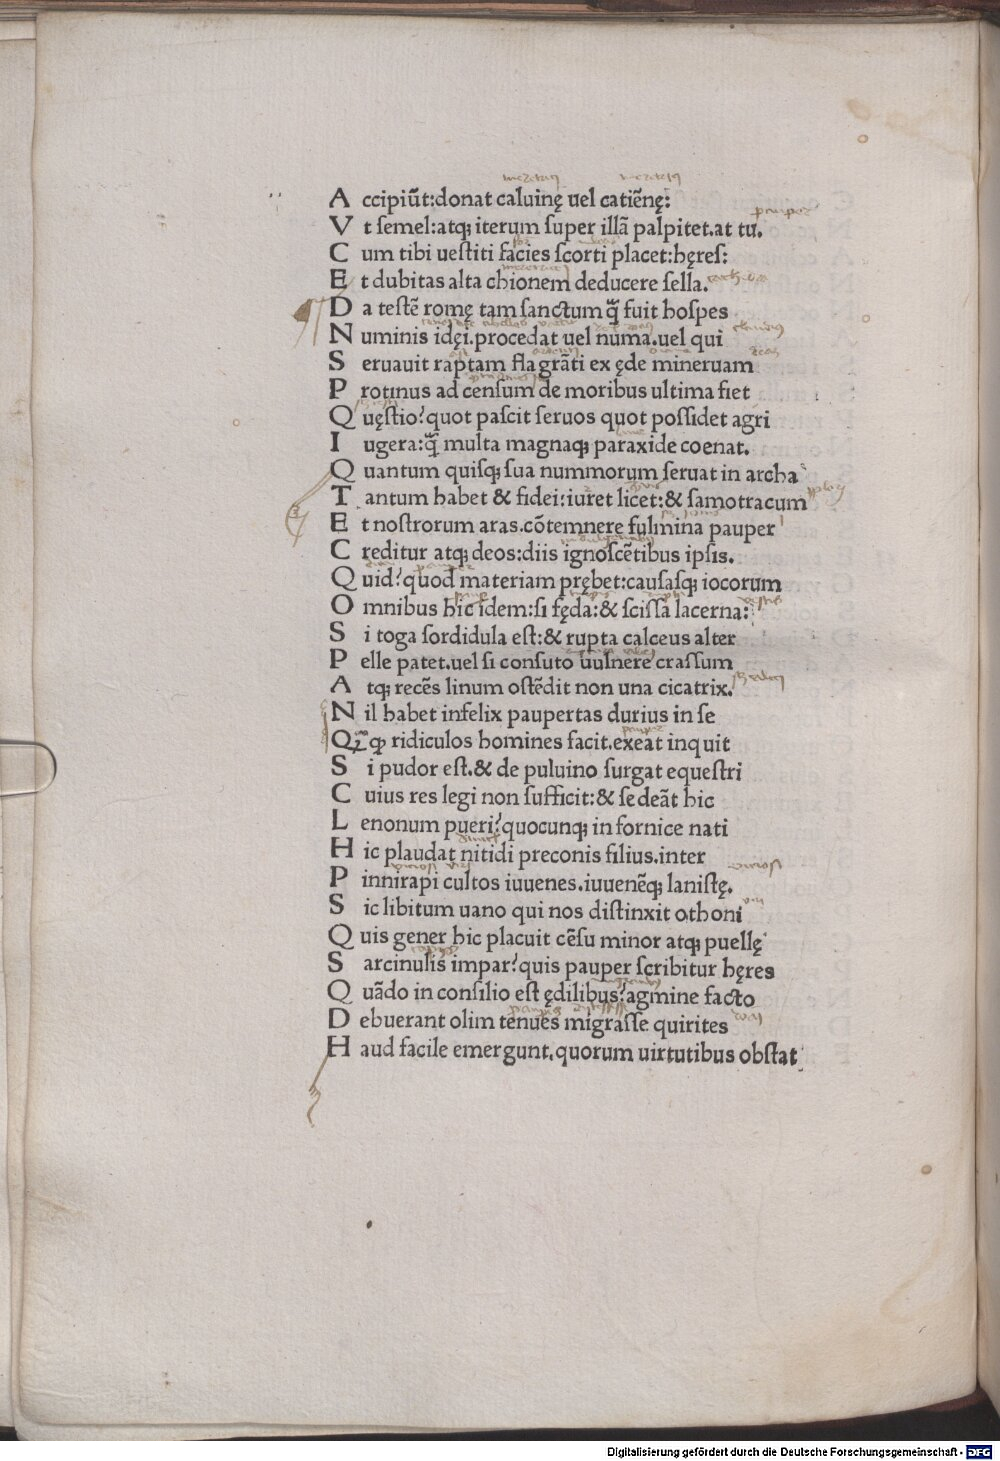 Accipiũt:donat caluinę uel catiẽnę:
Vt semel:atq; iterum super illã palpitet.at tu.
Cum tibi uestiti facies scorti placet:hęres:
Et dubitas alta chionem deducere sella.
Da testẽ romę tam sanctum q̃ fuit hospes
Numinis idęi.procedat uel numa.uel qui
Seruauit raptam flagrãti ex ęde mineruam
Protinus ad censum de moribus ultima fiet
Quęstio?quot pascit seruos quot possidet agri
Iugera:q̃ multa magnaq; paraxide coenat.
Quantum quisq; sua nummorum seruat in archa
Tantum habet & fidei:iuret licet:& samotracum
Et nostrorum aras.cõtemnere fulmina pauper
Creditur atq; deos:diis ignoscẽtibus ipsis.
Quid?quod materiam prębet:causasq; iocorum
Omnibus hic idem:si fęda:& scissa lacerna:
Si toga sordidula est:& rupta calceus alter
Pelle patet.uel si consuto uulnere crassum
Atq; recẽs linum ostẽdit non una cicatrix.
Nil habet infelix paupertas durius in se
Q ridiculos homines facit.exeat inquit
Si pudor est.& de puluino surgat equestri
Cuius res legi non sufficit:& sedeãt hic
Lenonum pueri?quocunq; in fornice nati
Hic plaudat nitidi preconis filius.inter
Pinnirapi cultos iuuenes.iuuenẽq; lanistę.
Sic libitum uano qui nos distinxit othoni
Quis gener hic placuit cẽsu minor atq; puellę
Sarcinulis impar?quis pauper scribitur hęres
Quãdo in consilio est ędilibus?agmine facto
Debuerant olim tenues migrasse quirites
Haud facile emergunt.quorum uirtutibus obstat
Digitalisierung gefördert durch die Deutsche Forschungsgemeinschaft - DFG